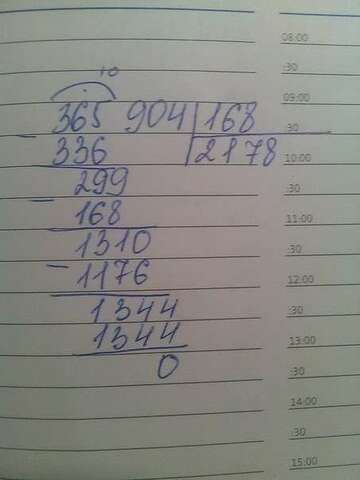 10
365 904 168
336 2178
299
168
1310
1176
1344
1344
0
08:00
:30
09:00
:30
10:00
:30
11:00
:30
12:00
:30
13:00
:30
14:00
:30
15:00